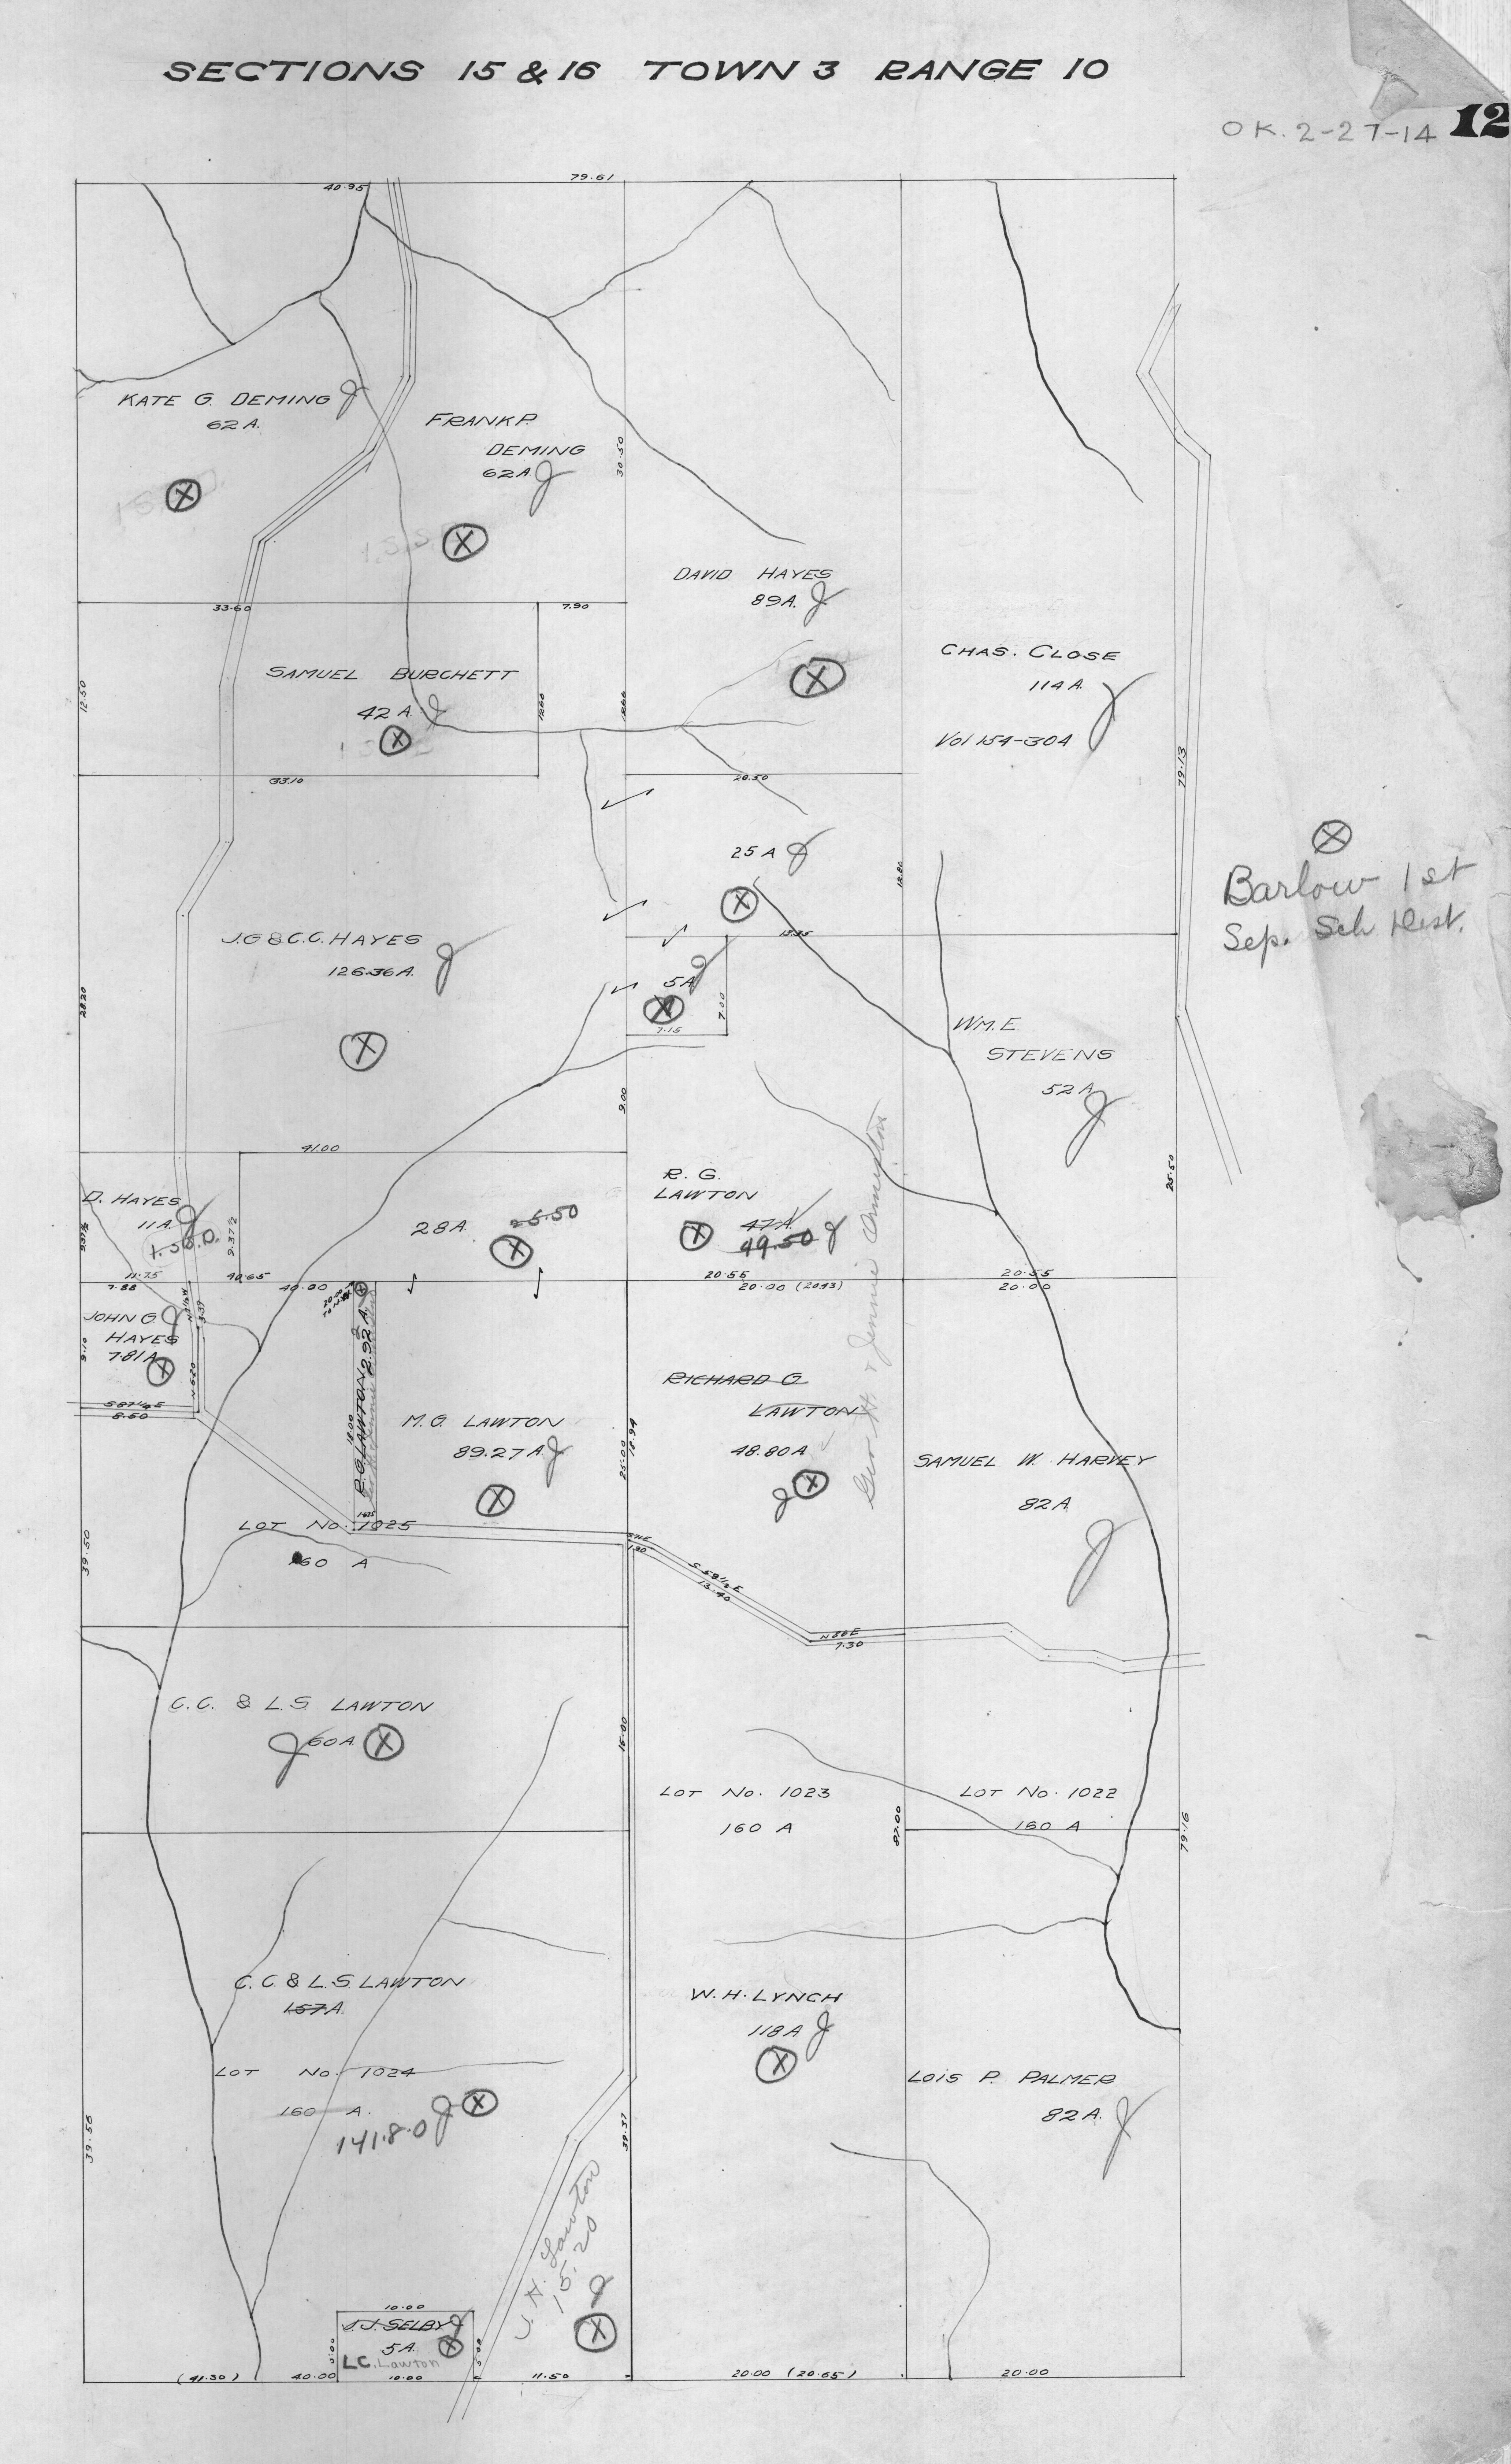 SECTIONS 15 & 16 TOWN 3 RANGE 10
OK. 2-27-14
12
40.95
79.61
KATE G. DEMING
62 A.
FRANK P.
DEMING
62 A.
30.50
33.60
7.90
DAVID HAYES
89 A.
SAMUEL BURCHETT
42 A.
12.50
12.66
12.66
33.10
20.50
CHAS. CLOSE
114 A.
Vol 154-304
79.13
X
Barlow 1st
Sep. Sch Dist.
25 A
X
13.35
J.G & C.C. HAYES
126.36 A.
X
28.20
5 A
7.00
7.15
9.00
WM. E.
STEVENS
52 A
25.50
41.00
D. HAYES
11 A.
1.55.0.
9.37½
9.37½
11.75
40.65
28 A.
25.50
X
R. G.
LAWTON
47 A
X
49.50
20.55
20.00 (20.43)
20.55
20.00
7.88
40.00
JOHN G
HAYES
7.81 A
X
9.10
N 6.20
S 87¼ E
8.50
R. G. LAWTON 2.92 A.
18.00
M. G. LAWTON
89.27 A.
X
25.00
78.94
RICHARD G
LAWTON
48.80 A
X
Geo H. & Jennie Armington
SAMUEL W. HARVEY
82 A
LOT No. 1025
160 A
39.50
S 71 E
1.90
S 59½ E
13.40
N 86 E
7.30
C.C. & L.S. LAWTON
60 A.
X
15.00
LOT No. 1023
160 A
LOT No. 1022
160 A
87.00
79.16
C.C. & L.S. LAWTON
157 A.
LOT No. 1024
160 A.
141.8.0
X
39.56
39.37
W. H. LYNCH
118 A
X
LOIS P. PALMER
82 A.
J. H. Lawton
15.20
X
10.00
J. J. SELBY
5 A.
X
L C. Lawton
5.00
5.00
(41.30)
40.00
10.00
11.50
20.00 (20.65)
20.00